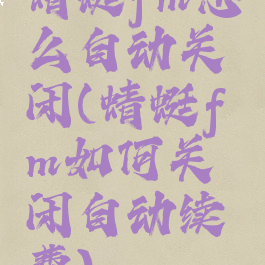 蜻蜓fm怎
么自动关
闭(蜻蜓f
m如何关
闭自动续
费)